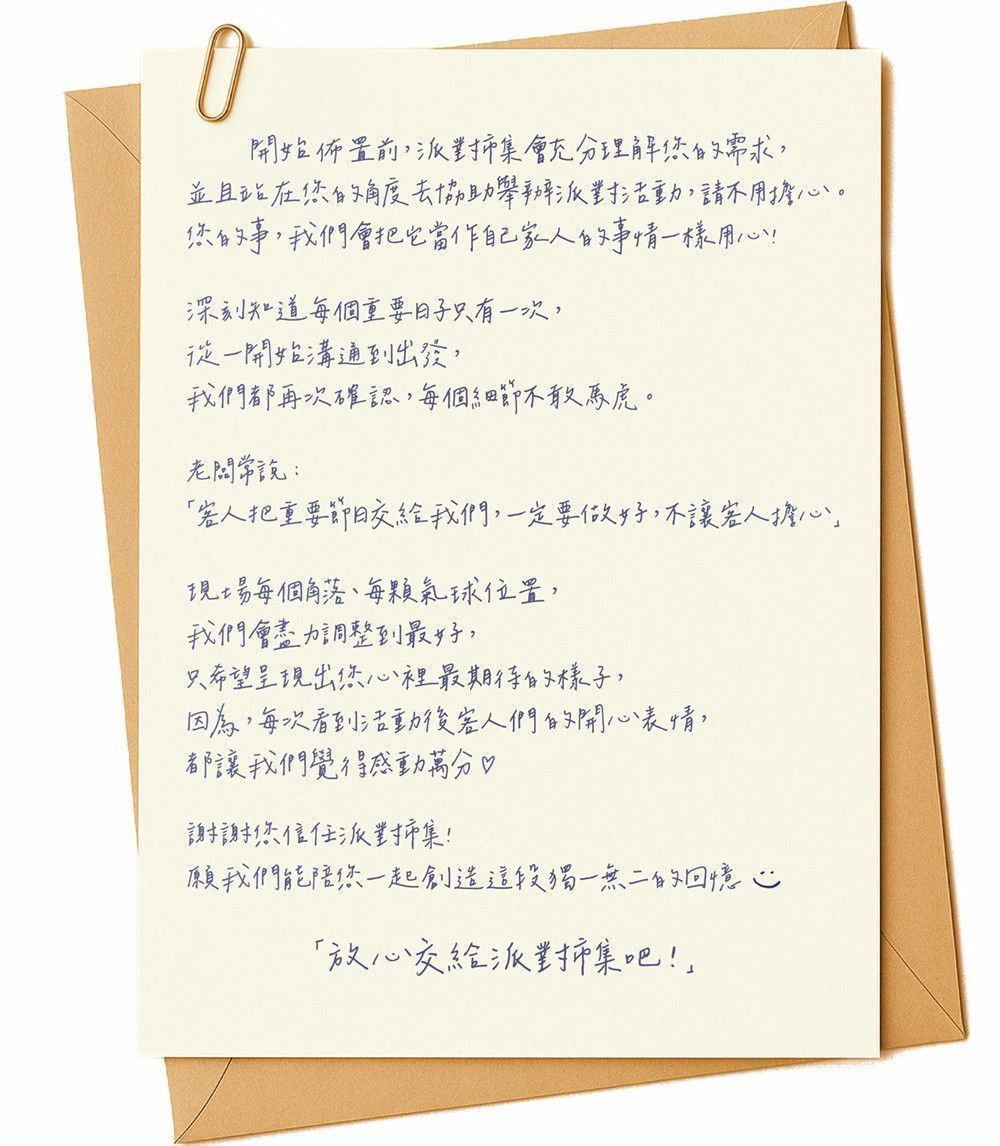 開始佈置前，派對拵集會充分理解您的需求，
並且站在您的角度去協助舉辦派對活動，請不用擔心。
您的事，我們會把它當作自己家人的事情一樣用心！
深刻知道每個重要日子只有一次，
從一開始溝通到出發，
我們都再次確認，每個細節不敢馬虎。
老闆常說：
「客人把重要節日交給我們，一定要做好，不讓客人擔心」
現場每個角落、每顆氣球位置，
我們會盡力調整到最好，
只希望呈現出您心裡最期待的樣子，
因為，每次看到活動後客人們的開心表情，
都讓我們覺得感動萬分♡
謝謝您信任派對拵集！
願我們能陪您一起創造這段獨一無二的回憶 ..‿
「放心交給派對拵集吧！」